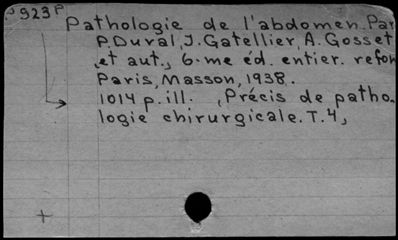 923 P
Pathologie de l'abdomen. Par
P. Duval, J. Gatellier, A. Gosset
et aut., 6-me éd. entier. refon
Paris, Masson, 1938.
1014 p. ill. , Précis de patho-
logie chirurgicale. T. 4,